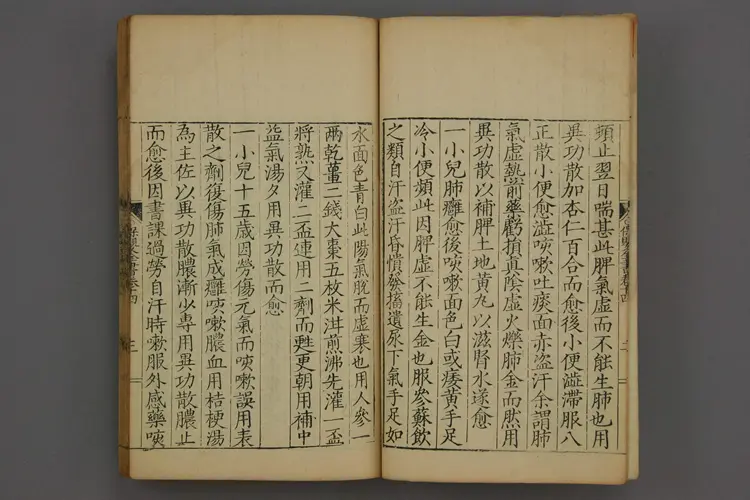 頭止翌日喘甚此脾氣虛而不能生肺也用
異功散加杏仁百合而愈後小便澁滯服八
正散小便愈澁咳嗽吐痰面赤盜汗余謂肺
氣虛熱前藥虧損眞陰虛火爍肺金而然用
異功散以補脾土地黃丸以滋腎水遂愈
一小兒肺癰愈後咳嗽面色白或痿黃手足
冷小便頻此因脾虛不能生金也服參蘇飲
之類自汗盜汗昏憒發搐遺尿下氣手足如
氷面色青白此陽氣脫而虛寒也用人參一
兩乾薑二錢大棗五枚米泔煎沸先灌一盃
將熟又灌二盃連用二劑而甦更朝用補中
益氣湯夕用異功散而愈
一小兒十五歲因勞傷元氣而咳嗽誤用表
散之劑復傷肺氣成癰咳嗽膿血用桔梗湯
為主佐以異功散膿漸少專用異功散膿止
而愈後因書課過勞自汗時嗽服外感藥咳